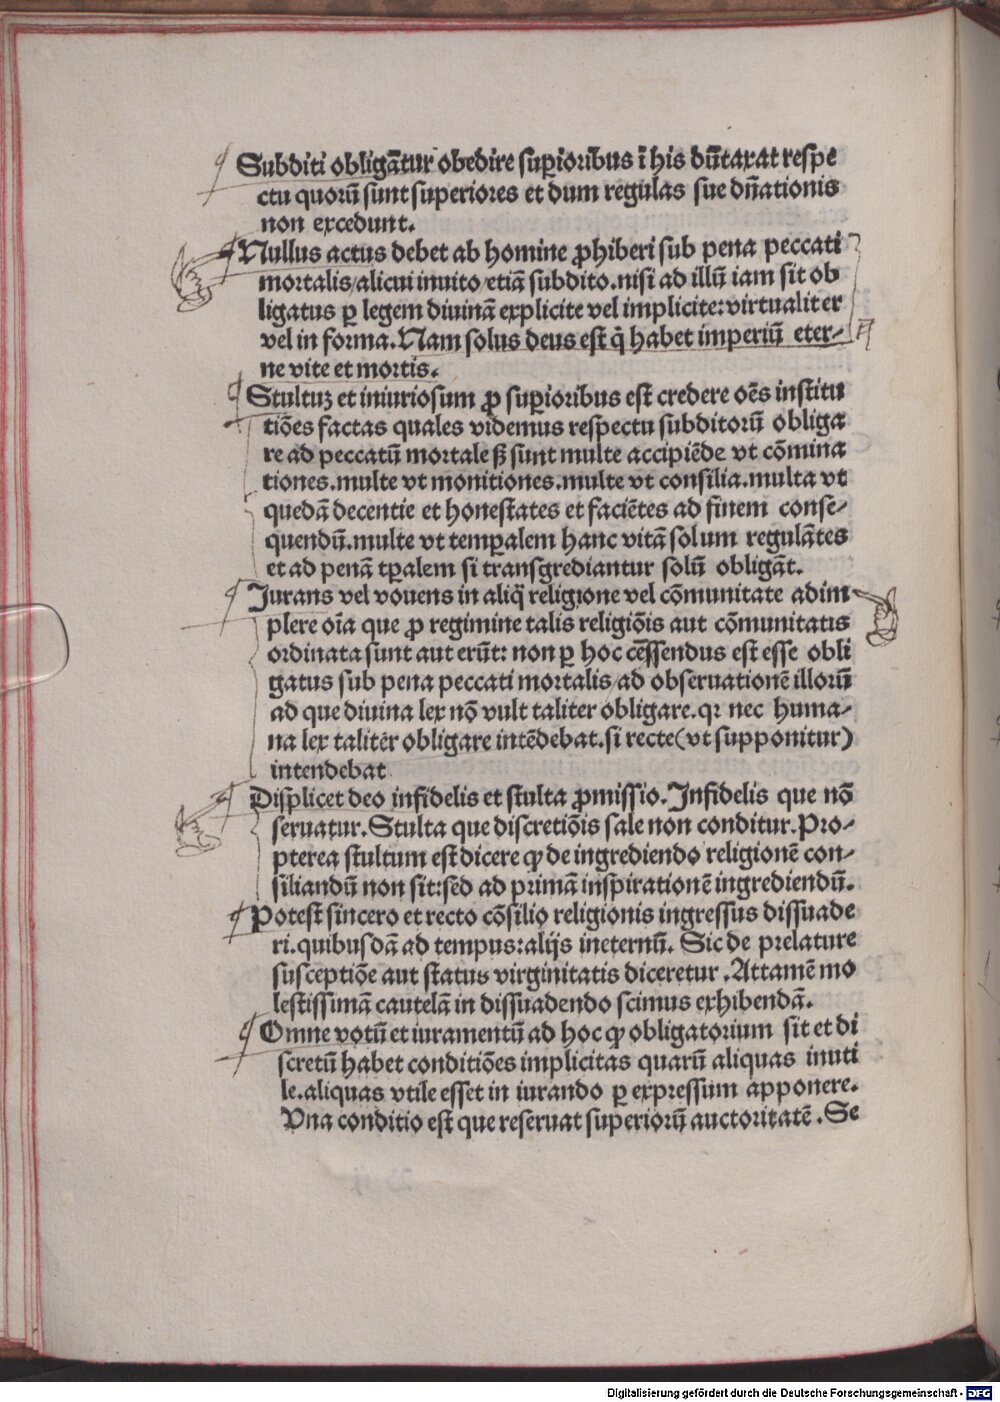 Subditi obligãtur obedire suꝑioribus ĩ his dũtaxat respe
ctu quorũ sunt superiores et dum regulas sue dñationis
non excedunt.
Nullus actus debet ab homine ꝓhiberi sub pena peccati
mortalis/alicui inuito/etiã subdito.nisi ad illũ iam sit ob
ligatus ꝑ legem diuinã explicite vel implicite:virtualiter
vel in forma.Nam solus deus est q̃ habet imperiũ eter-
ne vite et mortis.
Stultuꝫ et iniuriosum ꝓ suꝑioribus est credere oẽs institu
tiões factas quales videmus respectu subditorũ obliga
re ad peccatũ mortale ꝭ sunt multe accipiẽde vt cõmina
tiones.multe vt monitiones.multe vt consilia.multa vt
quedã decentie et honestates et faciẽtes ad finem conse-
quendũ.multe vt temꝑalem hanc vitã solum regulãtes
et ad penã tꝑalem si transgrediantur solũ obligãt.
Jurans vel vouens in aliq̃ religione vel cõmunitate adim
plere oĩa que ꝓ regimine talis religiõis aut cõmunitatis
ordinata sunt aut erũt: non ꝑ hoc cẽssendus est esse obli
gatus sub pena peccati mortalis/ad obseruationẽ illorũ
ad que diuina lex nõ vult taliter obligare.qꝛ nec huma-
na lex taliter obligare intẽdebat.si recte(vt supponitur)
intendebat
Displicet deo infidelis et stulta ꝓmissio.Infidelis que nõ
seruatur.Stulta que discretiõis sale non conditur.Pro-
pterea stultum est dicere ꝙ de ingrediendo religionẽ con-
siliandũ non sit:sed ad primã inspirationẽ ingrediendũ.
Potest sincero et recto cõsilio religionis ingressus dissuade
ri.quibusdã ad tempus:alijs ineternũ. Sic de prelature
susceptiõe aut status virginitatis diceretur.Attamẽ mo
lestissimã cautelã in dissuadendo scimus exhibendã.
Omne votũ et iuramentũ ad hoc ꝙ obligatorium sit et di
scretũ habet conditiões implicitas quarũ aliquas inuti
le.aliquas vtile esset in iurando ꝑ expressum apponere.
Una conditio est que reseruat superiorũ auctoritatẽ.Se
Digitalisierung gefördert durch die Deutsche Forschungsgemeinschaft - DFG